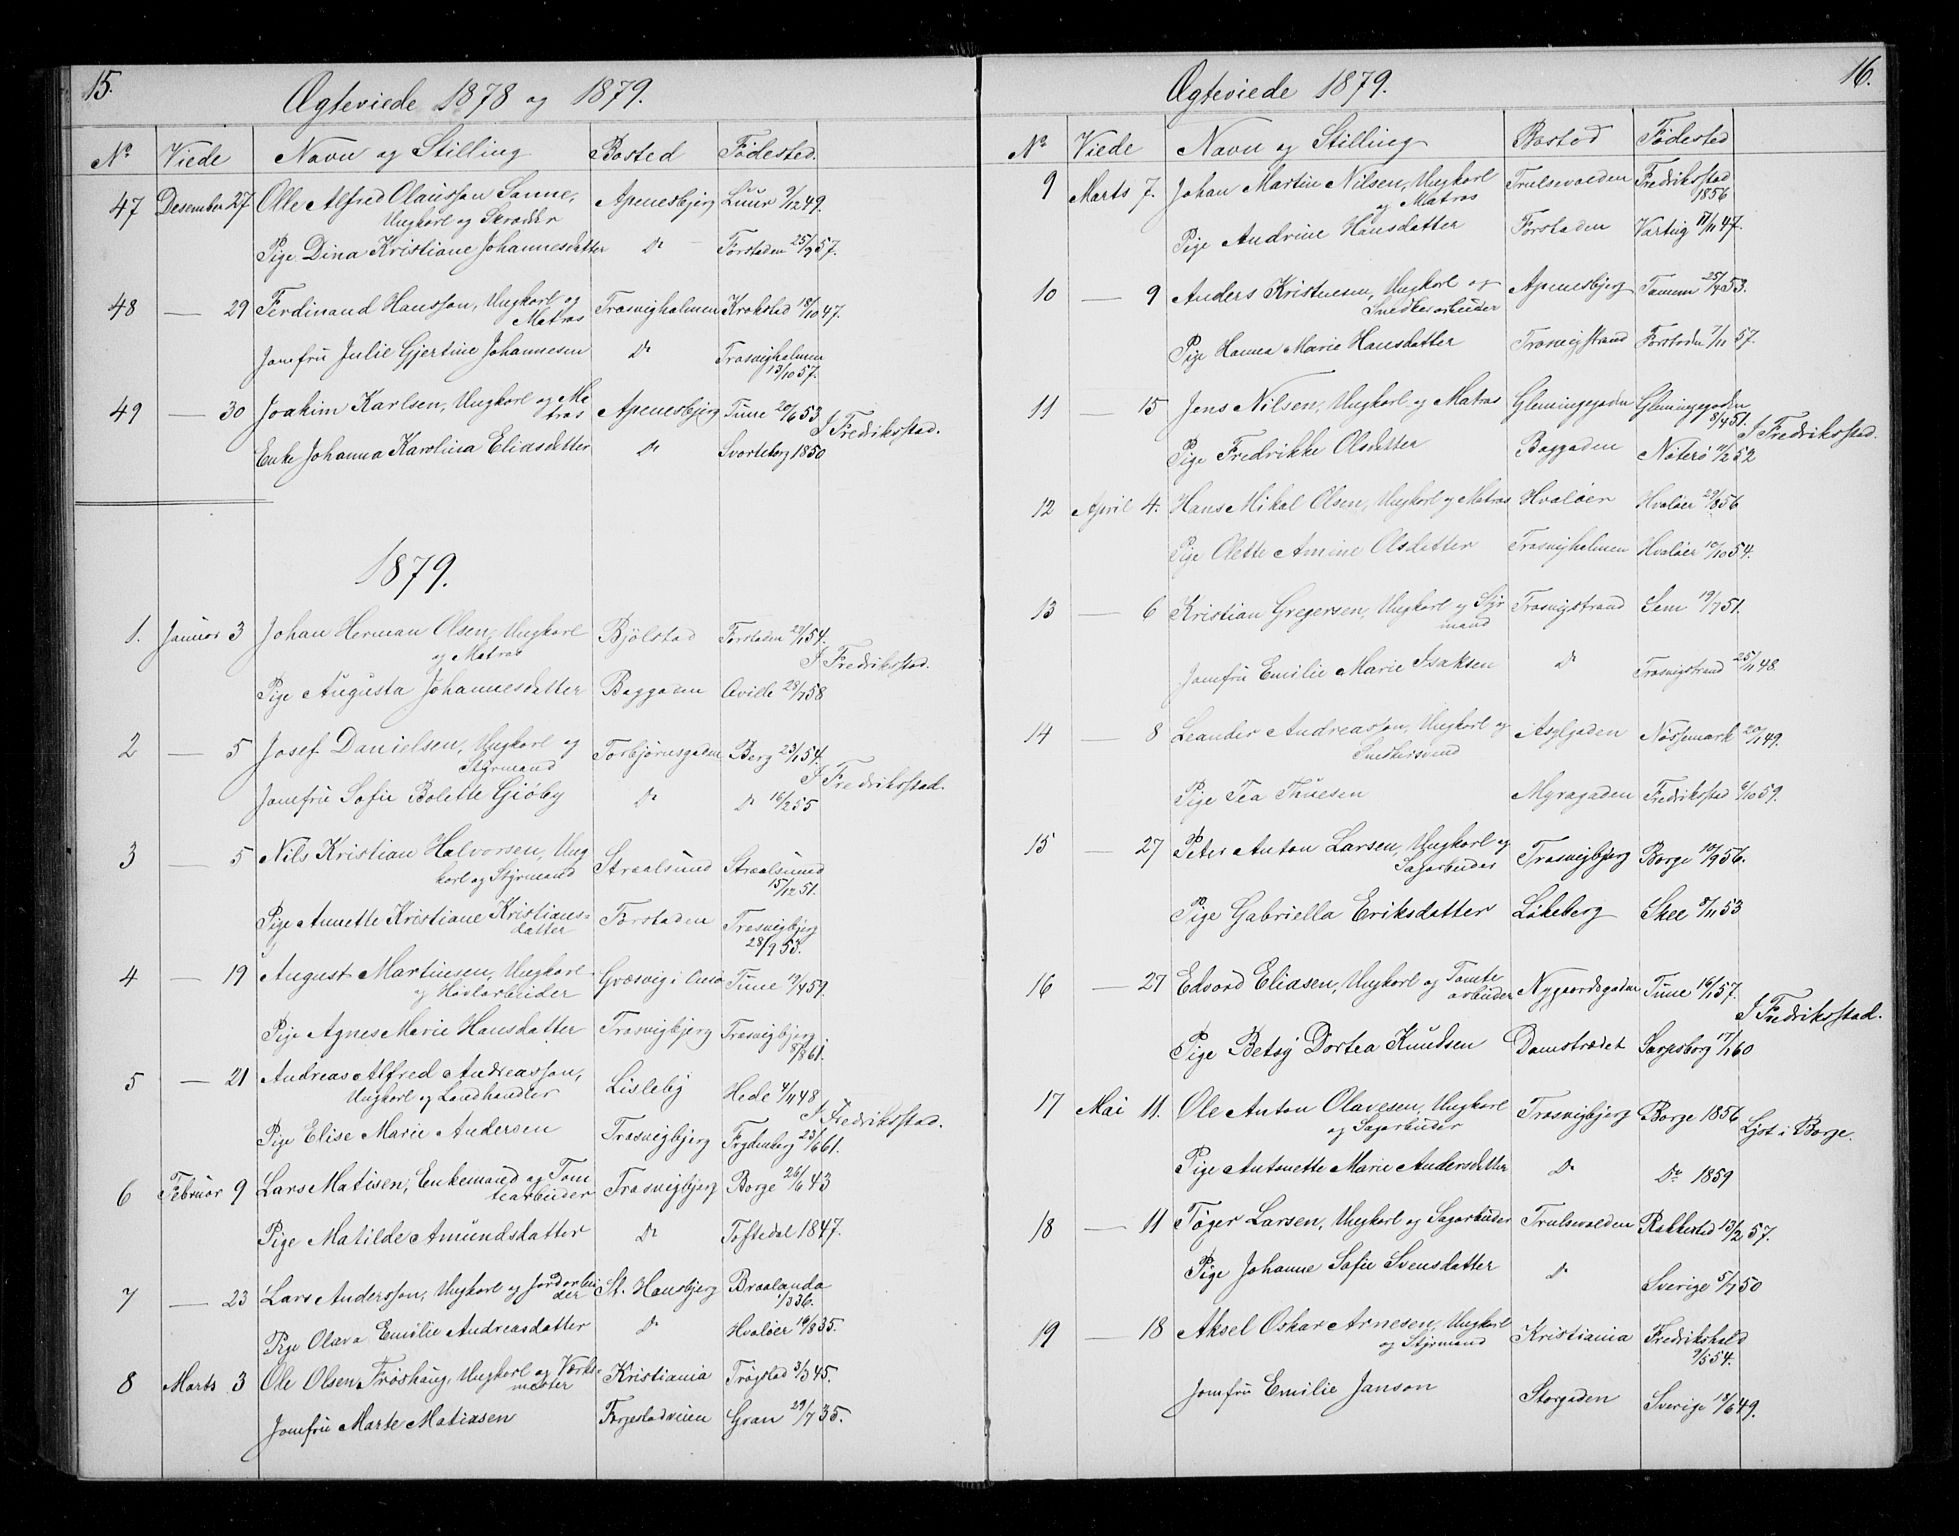 15.
Ægteviede 1878 og 1879.
No Viede Navn og Stilling Bosted Fødested.
47 Desember 27 Olle Alfred Olausson Sanne, Apenesbjerg Luur 9/12 49.
Ungkarl og Skræder
Pige Dina Kristiane Johannesdatter Do Forstaden 25/9 57.
48 — 29 Ferdinand Hansson, Ungkarl og Trosvigholmen Krokstad 18/10 47.
Matros
Jomfru Julie Gjertine Johannesen Do Trosvigholmen
13/10 57.
49 — 30 Joakim Karlsen, Ungkarl og Ma Apenesbjerg Tune 20/6 53
tros
I Fredriksstad.
Enke Johanna Karolina Eliasdatter Do Svarteborg 1850
1879.
1. Januar 3 Johan Herman Olsen, Ungkarl Bjølstad Forstaden 27/1 54.
og Matros
I Fredriksstad.
Pige Augusta Johannesdatter Baggaden Qville 28/7 58
2 — 5 Josef Danielsen, Ungkarl og Torbjørnsgaden Berg 23/1 54.
Styrmand
I Fredriksstad.
Jomfru Sofie Bolette Giøby Do Do 16/2 55
3 — 5 Nils Kristian Halvorsen, Ung Straalsund Straalsund
karl og Styrmand 15/12 51.
Pige Annette Kristiane Kristians= Forstaden Trosvigbjerg
datter 28/9 53.
4 — 19 August Martinesen, Ungkarl Græsvig i Onsø Tune 19/4 59.
og Høvlarbeider
Pige Agnes Marie Hansdatter Trosvigbjerg Trosvigbjerg
8/8 61.
5 — 21 Andreas Alfred Andreasson, Lisleby Hede 4/11 48
Ungkarl og Landhandler
I Fredriksstad.
Pige Elise Marie Andersen Trosvigbjerg Frydenberg 23/6 61.
6 Februar 9 Lars Matisen, Enkemand og Tom Trosvigbjerg Borge 26/6 43
tearbeider
Pige Matilde Amundsdatter Do Toftedal 1847.
7 — 23 Lars Andersson, Ungkarl og Jordarbei St. Hansbjerg Braalanda
der 1/3 36.
Pige Olava Emilie Andreasdatter Do Hvaløer 16/8 35.
8 Marts 3 Ole Olsen Frøshaug, Ungkarl og Værk- Kristiania Trøgstad 3/3 45.
mester
Jomfru Marte Matiasen Fergestadveien Gran 29/7 35.
16.
Ægteviede 1879.
No Viede Navn og Stilling Bosted Fødested
9 Marts 7. Johan Martin Nilsen, Ungkarl Trulsevolden Fredriksstad
og Matros 1856
Pige Andrine Hansdatter Forstaden Varteig 17/11 47.
10 — 9 Anders Kristnesen, Ungkarl og Apenesbjerg Tanum 25/4 53.
Snedkerarbeider
Pige Hanna Marie Hansdatter Trosvigstrand Forstaden 7/11 57.
11 — 15 Jens Nilsen, Ungkarl og Matros Glemingegaden Glemingegaden
8/4 51.
I Fredriksstad.
Pige Fredrikke Olsdatter Baggaden Nøterø 11/2 52
12 April 4. Hans Mikal Olsen, Ungkarl og Matros Hvaløer Hvaløer 29/8 56
Pige Olette Amine Olsdatter Trosvigholmen Hvaløer 10/10 54.
13 — 6 Kristian Gregersen, Ungkarl og Styr Trosvigstrand Sem 19/7 51.
mand
Jomfru Emilie Marie Isaksen Do Trosvigstrand 25/11 48.
14 — 8 Leander Andreasson, Ungkarl og Asylgaden Nøssemark 20/1 49.
Snedkersvend
Pige Tea Thuesen Myragaden Fredriksstad 6/10 59.
15 — 27 Peter Anton Larsen, Ungkarl og Trosvigbjerg Borge 19/9 56.
Sagarbeider
Pige Gabriella Eriksdatter Løkeberg Skee 8/11 53
16 — 27 Edvard Eliasen, Ungkarl og Tomte Nygaardsgaden Tune 16/1 57.
arbeider
I Fredriksstad.
Pige Betsy Dortea Knudsen Damstrædet Sarpsborg 17/1 60
17 Mai 11. Ole Anton Olavesen, Ungkarl Trosvigbjerg Borge 1856
og Sagarbeider
Lyst i Borge.
Pige Antonette Marie Andersdatter Do Do 1859
18 — 11 Tøger Larsen, Ungkarl og Sagarbeider Trulsevolden Rakkestad 13/2 57.
Pige Johanne Sofie Svensdatter Do Sverige 5/7 50
19 — 18 Aksel Oskar Arnesen, Ungkarl Kristiania Fredrikshald
og Styrmand 9/5 54.
Jomfru Emilie Janson Storgaden Sverige 18/6 49.